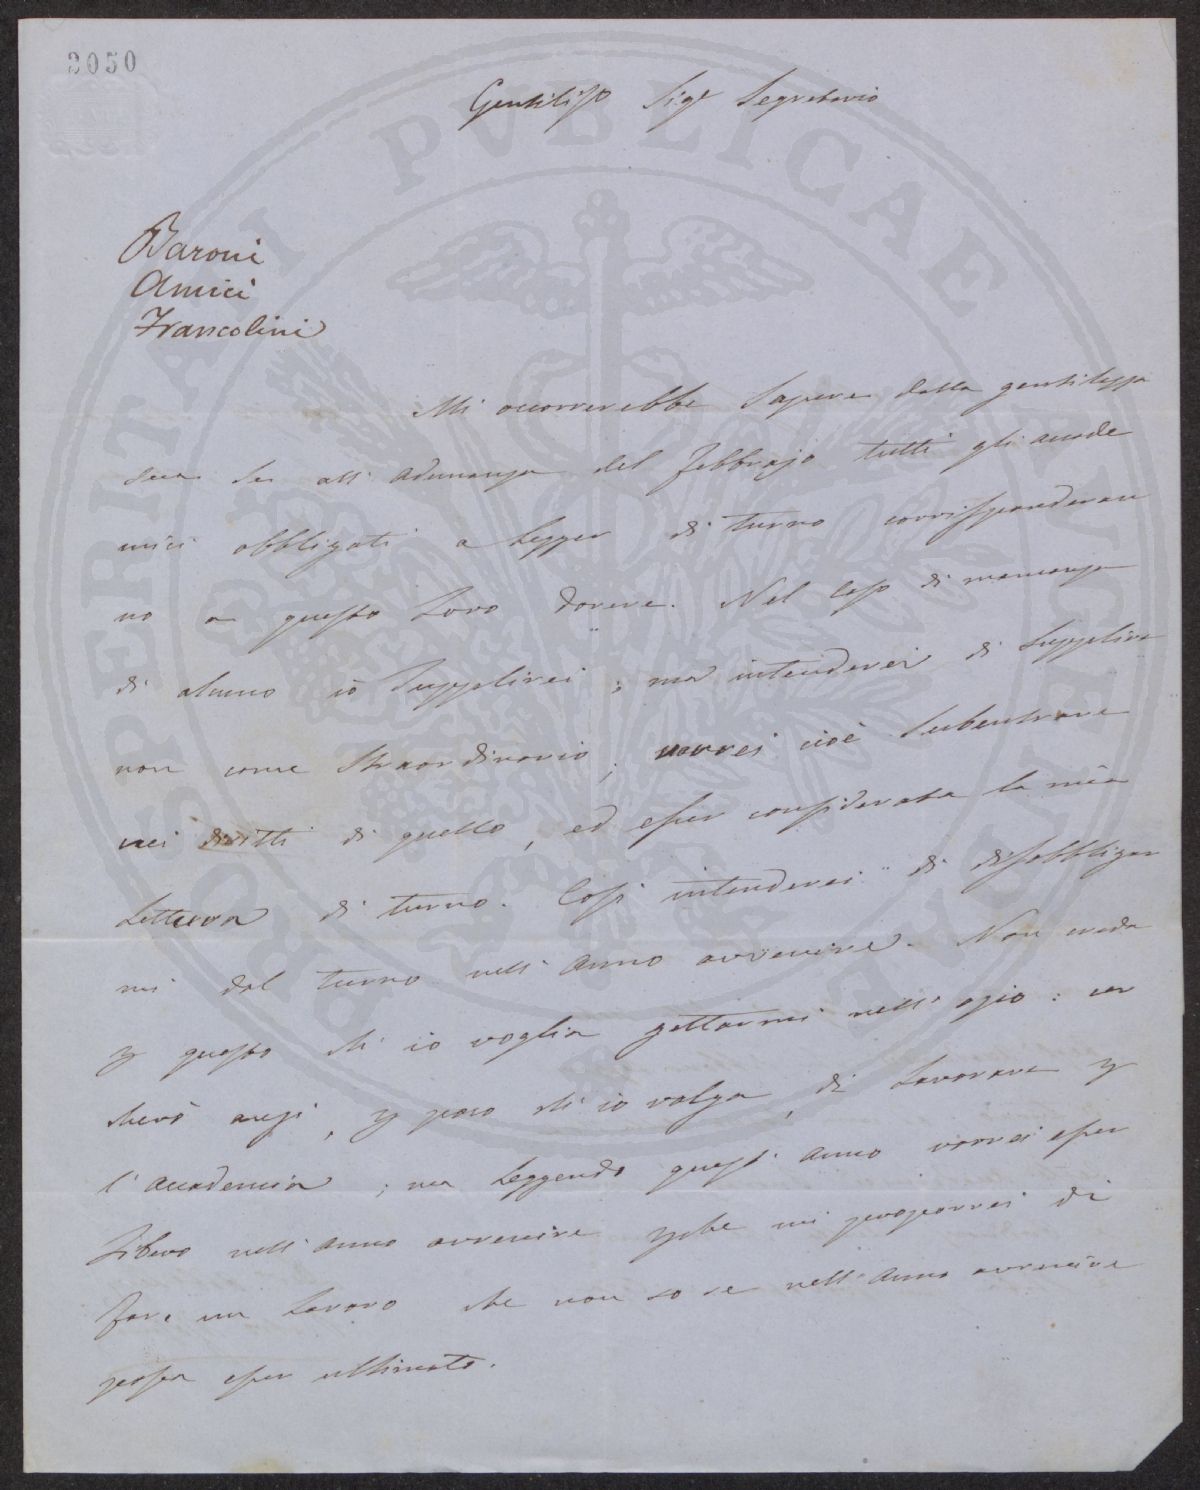 2050
Gentiliss.o Sig.r Segretario
Baroni
Amici
Francolini
Mi occorrerebbe sapere dalla gentilezza
sua se all'adunanza del febbrajo tutti gli accade
mici obbligati a legger di turno corrisponderan
no a questo loro dovere. Nel caso di mancanza
di alcuno io supplirei; ma intenderei di supplire
non come straordinario; vorrei cioè subentrare
nei diritti di quello, ed esser considerata la mia
lettura di turno. Così intenderei di disobbligar
mi dal turno nell'anno avvenire. Non creda
p questo ch'io voglia gettarmi nell'ozio: cer
cherò anzi, p poco ch'io valga, di lavorare p
l'accademia; ma leggendo quest'anno vorrei esser
libero nell'anno avvenire pche mi proporrei di
fare un lavoro che non so se nell'anno avvenire
possa esser ultimato.
PROSPERITATI PVBLICAE AVGENDAE